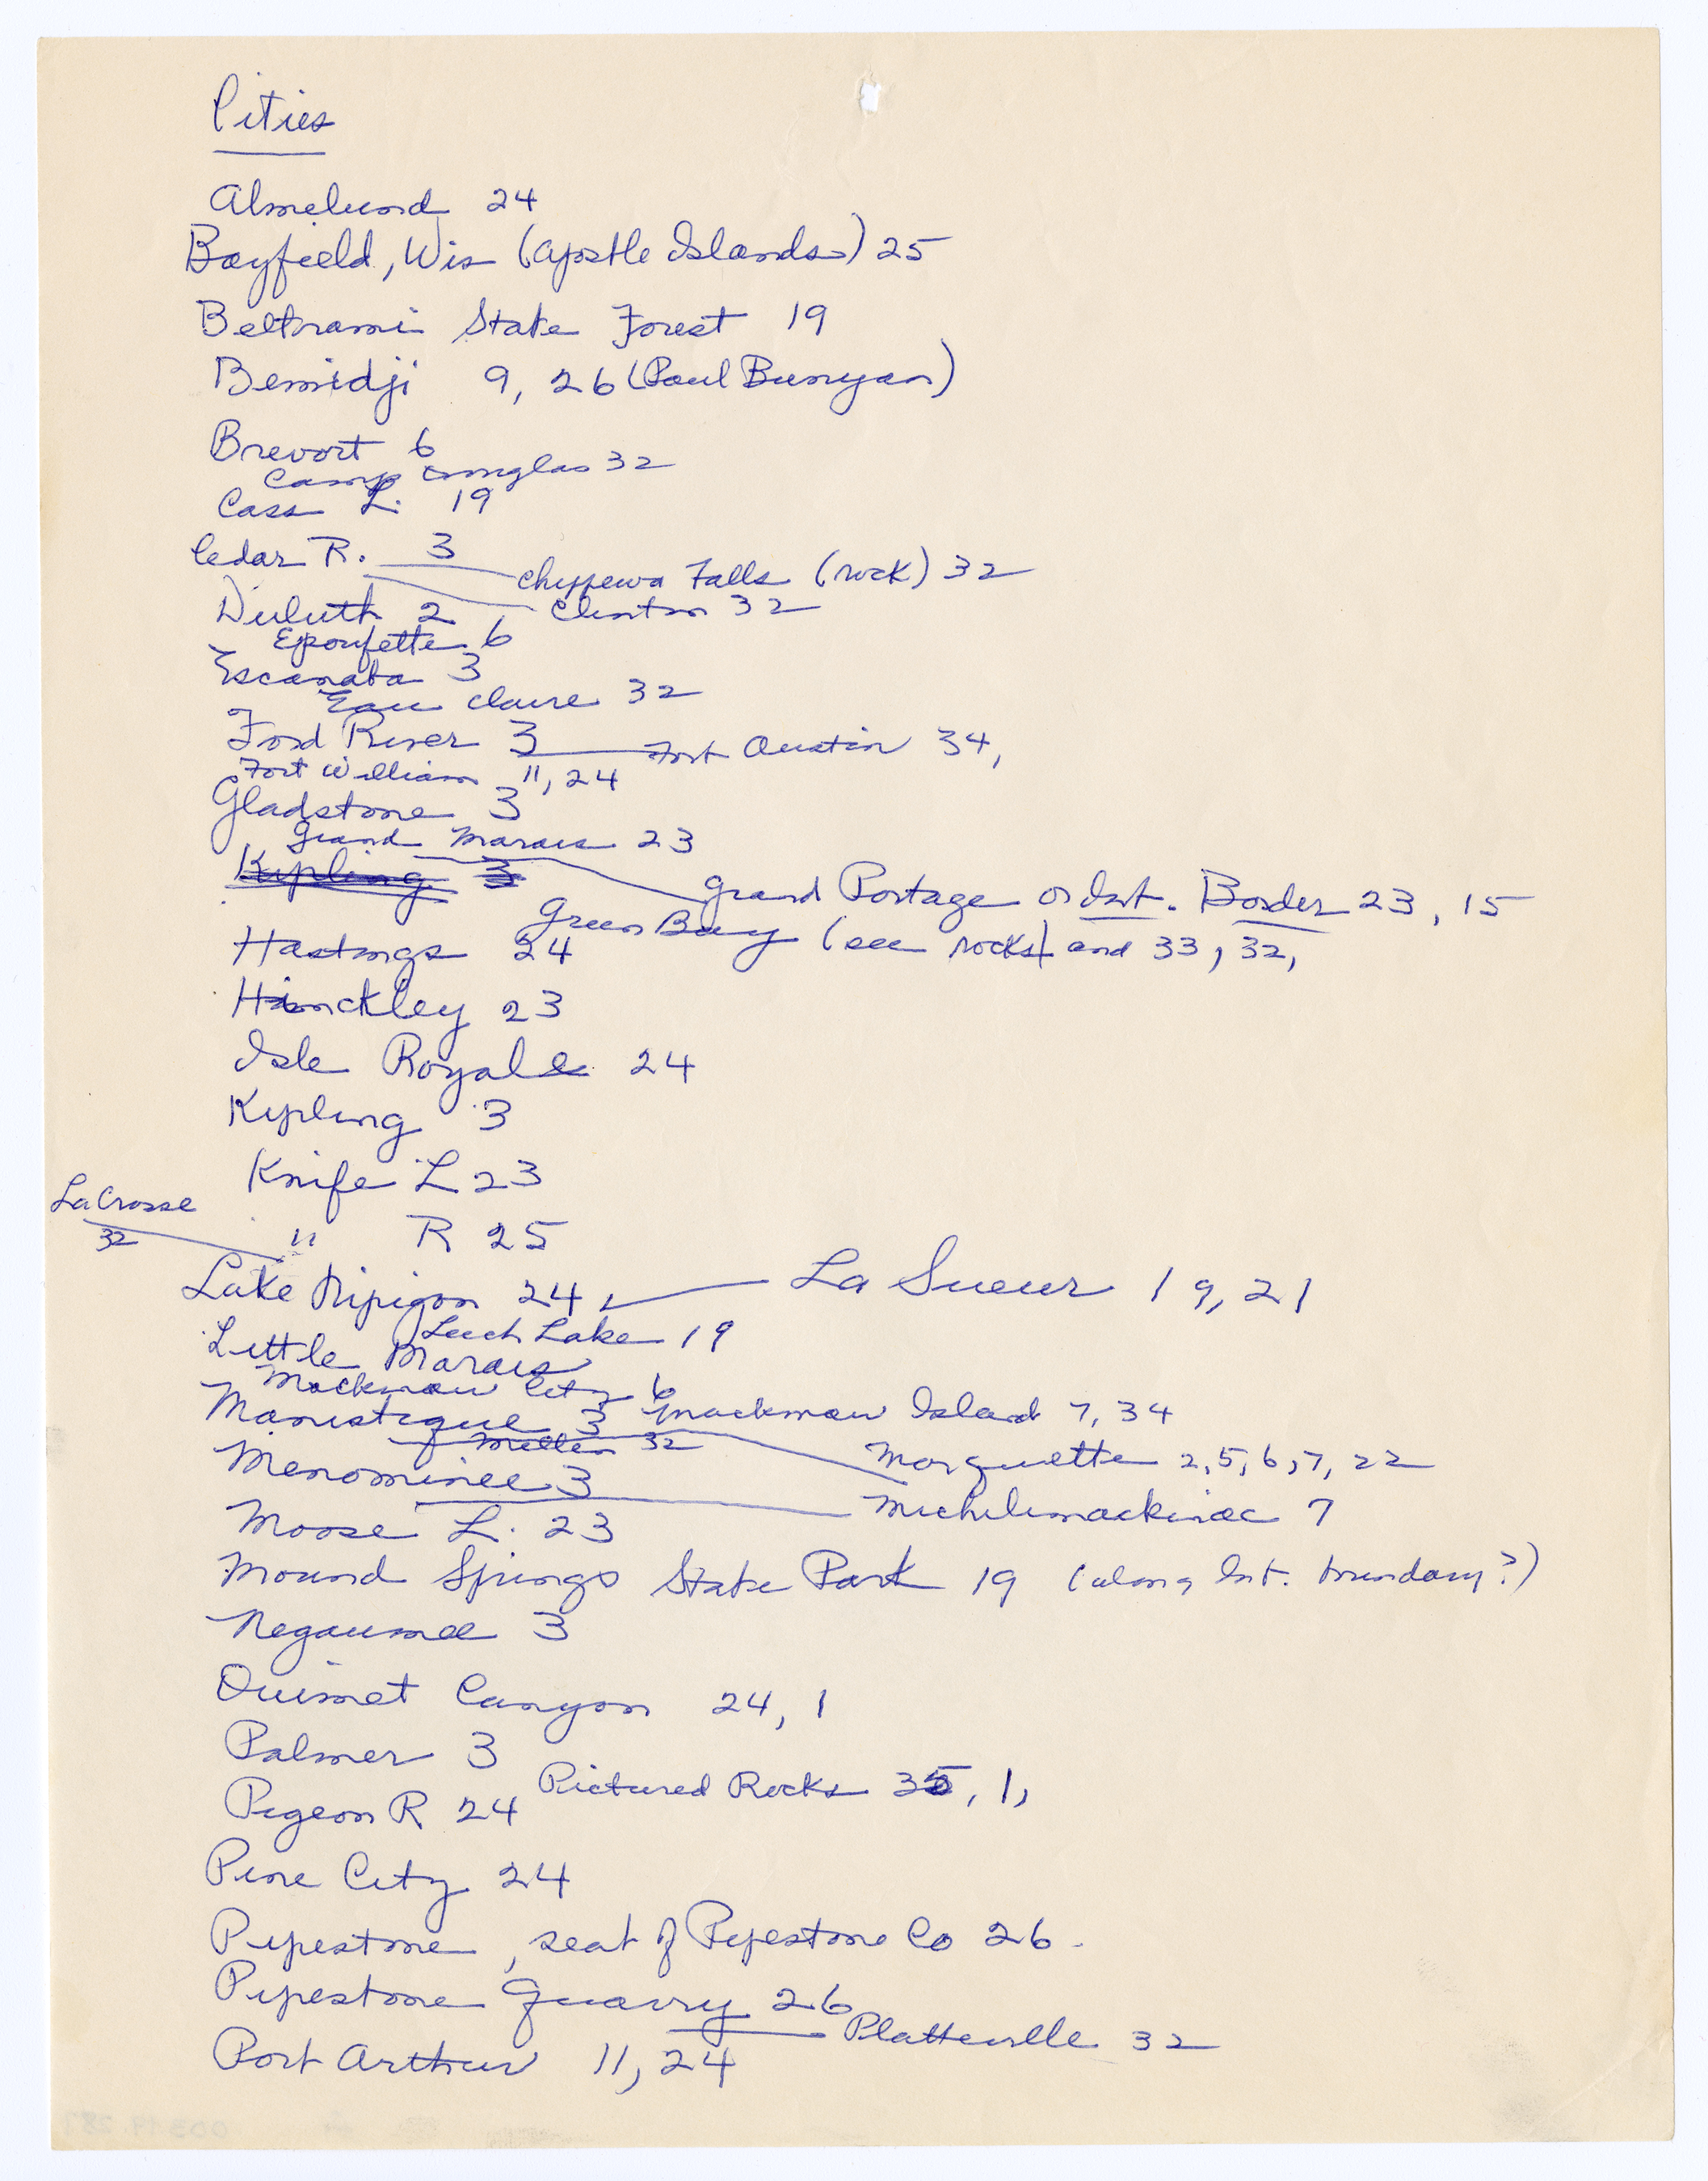 Cities
Almelund 24
Bayfield, Wis (Apostle Islands) 25
Beltrami State Forest 19
Bemidji 9, 26 (Paul Bunyan)
Brevort 6
Camp Douglas 32
Cass L. 19
Cedar R. 3
Chippewa Falls (rock) 32
Duluth 2
Clinton 32
Epoufette 6
Escanaba 3
Eau Claire 32
Ford River 3
Fort Austin 34,
Fort William 11, 24
Gladstone 3
Grand Marais 23
Kipling 3
Grand Portage or Int. Border 23, 15
Green Bay (see rocks) and 33, 32,
Hastings 24
Hinckley 23
Isle Royale 24
Kipling 3
Knife L 23
LaCrosse
32
" R 25
Lake Nipigon 24,
La Sueur 19, 21
Leech Lake 19
Little Marais
Mackinaw City 6
Manistique 3
Mackinaw Island 7, 34
Mellen 32
Marquette 2, 5, 6, 7, 22
Menominee 3
Michilimackinac 7
Moose L. 23
Mound Springs State Park 19 (along Int. boundary?)
Negaunee 3
Ouimet Canyon 24, 1
Palmer 3
Pictured Rocks 35, 1,
Pigeon R 24
Pine City 24
Pipestone, seat of Pipestone Co 26.
Pipestone Quarry 26
Platteville 32
Port Arthur 11, 24